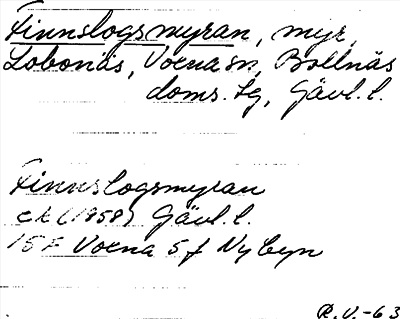 Finnslogsmyran, myr,
Lobonäs, Voxna sn, Bollnäs
doms. tg, Gävl. l.
Finnslogsmyran
ek (1958) Gävl. l.
15F Voxna 5f Nybyn
R.V.-63